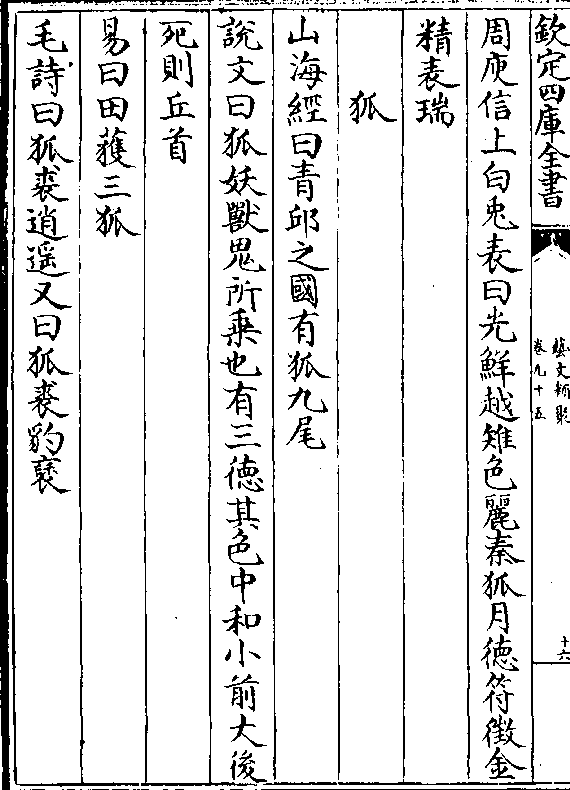 欽定四庫全書
藝文類聚
卷九十五
十六
周庾信上白兎表曰光鮮越雉色麗秦狐月德符徵金
精表瑞
狐
山海經曰青邱之國有狐九尾
説文曰狐妖獸鬼所乗也有三德其色中和小前大後
死則丘首
易曰田獲三狐
毛詩曰狐裘逍遥又曰狐裘豹褎